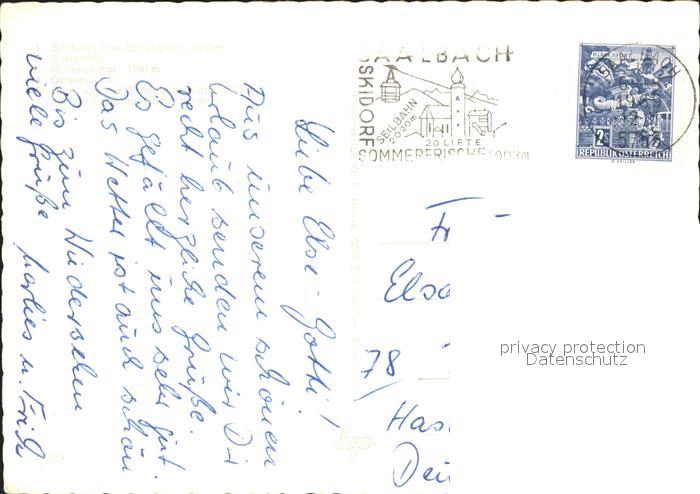 1 Seilbahn zum
Dorfstraße
Hinterglemm, 1100 m
SAALBACH
SKIDORF
SEILBAHN
2020m
20 LIFTE
SOMMERFRISCHE 1003m
KLAGENFURT
2S
REPUBLIK ÖSTERREICH
Liebe Else-Gotti!
Aus unserem schönen
Urlaub senden wir Dir
recht herzliche Grüße.
Es gefällt uns sehr gut.
Das Wetter ist auch schön
Bis zum Wiedersehen
viele Grüße Marlies u.
Fr
Else
78
Has
Deu
privacy protection
Datenschutz